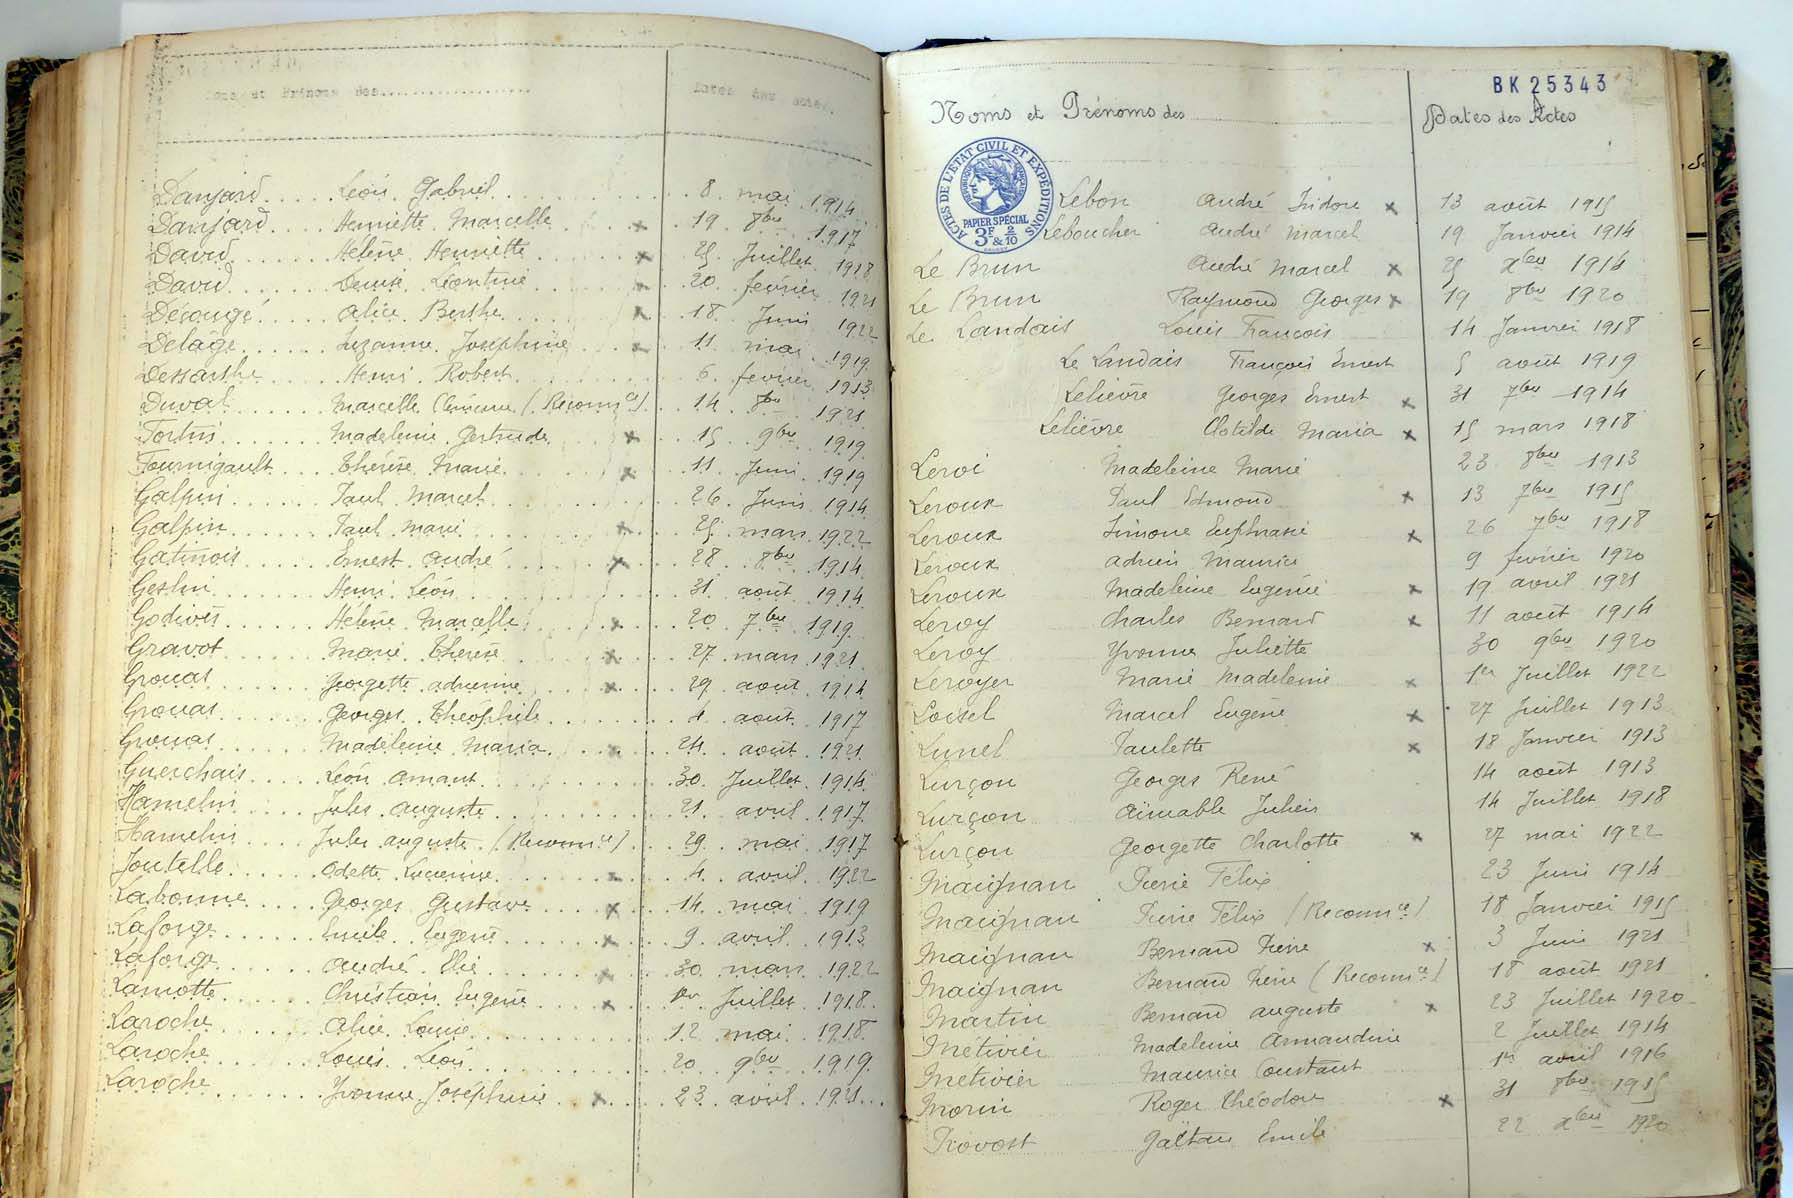 Noms et Prénoms des
Dates des actes
Danjard Léon Gabriel 8 mai 1914
Danjard Henriette Marcelle x 19 8bre 1917
David Hélène Henriette x 25 Juillet 1918
David Denise Léontine x 20 février 1921
Décougé Alice Berthe x 18 Juin 1922
Delâge Suzanne Joséphine x 11 mai 1919
Dessarthe Henri Robert 6 février 1913
Duval Marcelle (Reconnce) 14 8bre 1921
Fortin Madeleine Gertrude x 15 9bre 1919
Fournigault Thérèse Marie x 11 Juin 1919
Galpin Paul Marcel 26 Juin 1914
Galpin Paul Marie x 25 mars 1922
Gatinois Ernest André x 28 8bre 1914
Geslin Henri Léon 31 août 1914
Godivès Hélène Marcelle x 20 7bre 1919
Gravot Marie Thérèse x 27 mars 1921
Grouas Georgette Adrienne x 29 août 1914
Grouas Georges Théophile 4 août 1917
Grouas Madeleine Maria x 24 août 1921
Guerchais Léon Amant 30 Juillet 1914
Hamelin Jules Auguste 21 avril 1917
Hamelin Jules Auguste (Reconnce) 29 mai 1917
Joutelle Odette Lucienne x 4 avril 1922
Labonne Georges Gustave x 14 mai 1919
Laforge Emile Eugène x 9 avril 1913
Laforge André Elie x 30 mars 1922
Lamotte Christian Eugène x 1er Juillet 1918
Laroche Alice Louise 12 mai 1918
Laroche Louis Léon 20 9bre 1919
Laroche Yvonne Joséphine x 23 avril 1921
BK 25343
Noms et Prénoms des
Dates des Actes
ACTES DE L'ETAT CIVIL ET EXPÉDITIONS
PAPIER SPÉCIAL
3F & 2/10
Lebon André Isidore x 13 août 1915
Leboucher André Marcel 19 Janvier 1914
Le Brun André Marcel x 25 Xbre 1914
Le Brun Raymond Georges x 19 8bre 1920
Le Landais Louis François 14 Janvier 1918
Le Landais François Ernest 5 août 1919
Lelièvre Georges Ernest x 31 7bre 1914
Lelièvre Clotilde Maria x 15 mars 1918
Leroi Madeleine Marie 23 8bre 1913
Leroux Paul Edmond x 13 7bre 1915
Leroux Simone Euphrasie x 26 7bre 1918
Leroux Adrien Maurice 9 février 1920
Leroux Madeleine Eugénie x 19 avril 1921
Leroy Charles Bernard x 11 août 1914
Leroy Yvonne Juliette 30 9bre 1920
Leroyer Marie Madeleine x 1er Juillet 1922
Loisel Marcel Eugène x 27 Juillet 1913
Lunel Paulette x 18 Janvier 1913
Lurçon Georges René 14 août 1913
Lurçon Aimable Julien 14 Juillet 1918
Lurçon Georgette Charlotte x 27 mai 1922
Maignan Pierre Félix 23 Juin 1914
Maignan Pierre Félix (Reconnce) 18 Janvier 1915
Maignan Bernard Pierre x 3 Juin 1921
Maignan Bernard Pierre (Reconnce) 18 août 1921
Martin Bernard Auguste x 23 Juillet 1920
Métivier Madeleine Armandine 2 Juillet 1914
Métivier Maurice Constant 1er avril 1916
Morin Roger Théodore x 31 8bre 1915
Provost Gaëtan Emile 22 Xbre 1920